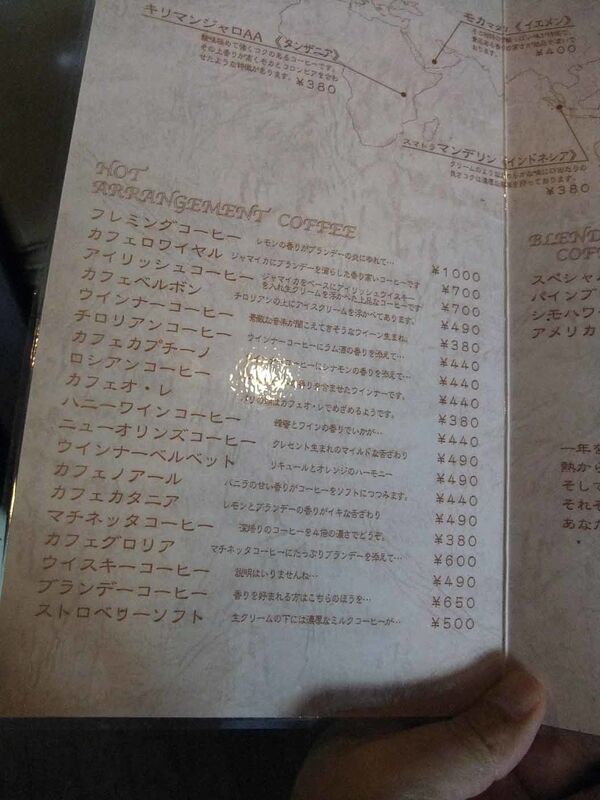 キリマンジャロAA 《タンザニア》
¥380
モカマタリ《イエメン》
¥400
スマトラマンデリン《インドネシア》
¥380
HOT
ARRANGEMENT COFFEE
フレミングコーヒー レモンの香りがブランデーの炎にゆれて… ¥1000
カフェロワイヤル ジャマイカにブランデーを湿らした香り高いコーヒーです ¥700
アイリッシュコーヒー ジャマイカをベースにアイリッシュウイスキーを入れ生クリームを浮かべた上品なコーヒーです ¥700
カフェベルボン チロリアンの上にアイスクリームを浮かべてあります。 ¥490
ウインナーコーヒー 素敵な音楽が聞こえて来そうなウイーン生まれ。 ¥380
チロリアンコーヒー ウインナーコーヒーにラム酒の香りを添えて… ¥440
カフェカプチーノ コーヒーにシナモンの香りを添えて… ¥440
ロシアンコーヒー 香りを含ませたウインナーです。 ¥440
カフェオ・レ カフェオ・レでめざめるようです。 ¥380
ハニーワインコーヒー 蜂蜜とワインの香りでいかが… ¥440
ニューオリンズコーヒー クレセント生まれのマイルドな舌ざわり ¥490
ウインナーベルベット リキュールとオレンジのハーモニー ¥490
カフェノアール バニラの甘い香りがコーヒーをソフトにつつみます。 ¥440
カフェカタニア レモンとブランデーの香りがイキな舌ざわり ¥490
マチネッタコーヒー 深焙りのコーヒーを4倍の濃さでどうぞ。 ¥380
カフェグロリア マチネッタコーヒーにたっぷりブランデーを添えて… ¥600
ウイスキーコーヒー 説明はいりませんね… ¥490
ブランデーコーヒー 香りを好まれる方はこちらのほうを… ¥650
ストロベリーソフト 生クリームの下には濃厚なミルクコーヒーが… ¥500
BLEND
スペシャル
シモハワ
アメリカ
一年を
熱から
そして
それぞ
あなた